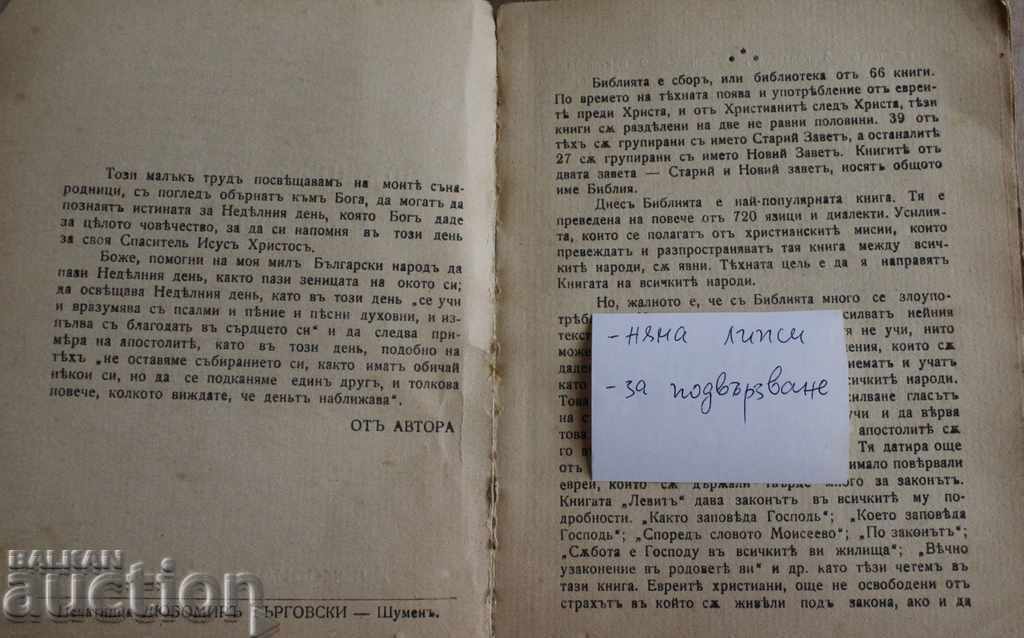 Този малъкъ трудъ посвѣщавамъ на моитѣ съна-
родници, съ погледъ обърнатъ къмъ Бога, да могатъ да
познаятъ истината за Недѣлния день, която Богъ даде
за цѣлото човѣчество, за да си напомня въ този день
за своя Спаситель Исусъ Христосъ.
Боже, помогни на моя милъ Български народъ да
пази Недѣлния день, както пази зеницата на окото си;
да освѣщава Недѣлния день, като въ този день „се учи
и вразумява съ псалми и пѣние и пѣсни духовни, и из-
пълва съ благодать въ сърдцето си“ и да следва при-
мѣра на апостолитѣ, като въ този день, подобно на
тѣхъ „не оставяме събирането си, както иматъ обичай
нѣкои си, но да се подканяме единъ другъ, и толкова
повече, колкото виждате, че деньтъ наближава“.
ОТЪ АВТОРА
ЛЮБОМИРЪ ТЪРГОВСКИ — Шуменъ.
BALKAN
auction
Библията е сборъ, или библиотека отъ 66 книги.
По времето на тѣхната поява и употрѣбление отъ евреи-
тѣ преди Христа, и отъ Християнитѣ следъ Христа, тѣзи
книги сѫ раздѣлени на две не равни половини. 39 отъ
тѣхъ сѫ групирани съ името Старий Заветъ, а останалитѣ
27 сѫ групирани съ името Новий Заветъ. Книгитѣ отъ
двата завета — Старий и Новий заветъ, носятъ общото
име Библия.
Днесъ Библията е най-популярната книга. Тя е
преведена на повече отъ 720 язици и диалекти. Усилия-
та, които се полагатъ отъ християнскитѣ мисии, които
превеждатъ и разпространяватъ тая книга между всич-
китѣ народи, сѫ явни. Тѣхната цель е да я направятъ
Книгата на всичкитѣ народи.
Но, жалното е, че съ Библията много се злоупо-
трѣб силватъ нейния
текст тя не учи, нито
може ения, които сѫ
даден иематъ и учатъ
като сичкитѣ народи.
Това силване гласътъ
на с учи и да вѣрва
това. апостолитѣ сѫ
го в Тя датира още
отъ имало повѣрвали
евреи, които сѫ държали твърде много за законътъ.
Книгата „Левитъ“ дава законътъ въ всичкитѣ му по-
дробности. „Както заповѣда Господь“; „Което заповѣда
Господь“; „Споредъ словото Моисеево“; „По законътъ“;
„Сѫбота е Господу въ всичкитѣ ви жилища“; „Вѣчно
узаконение въ родоветѣ ви“ и др. като тѣзи четемъ въ
тази книга. Евреитѣ християни, още не освободени отъ
страхътъ въ който сѫ живѣли подъ закона, ако и да
- няма липси
- за подвързване